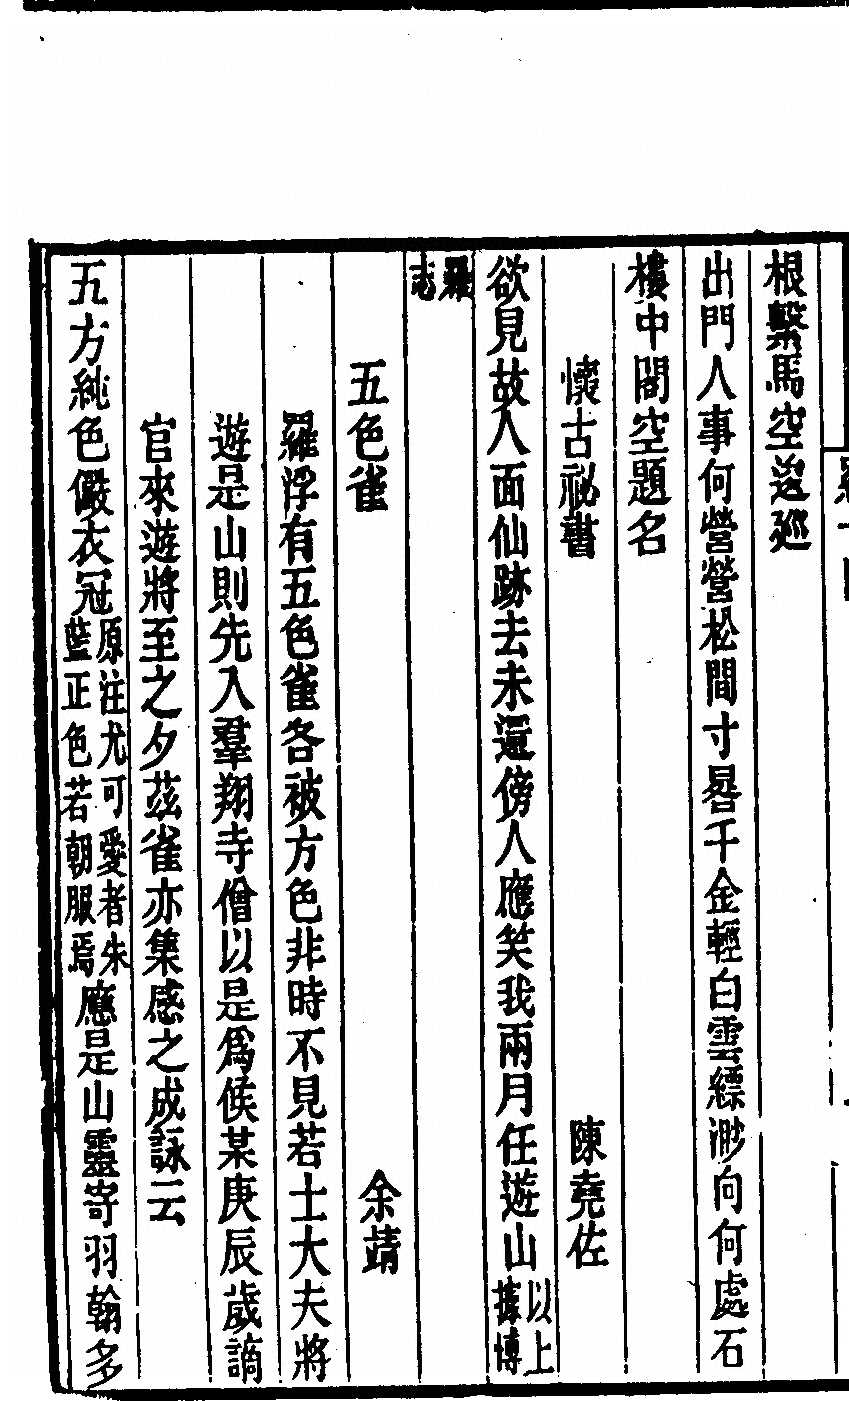 根繫馬空迨廵
出門人事何營營松間寸晷千金輕白雲縹渺向何處石
樓中閣空題名
懷古祕書　陳堯佐
欲見故人面仙跡去未還傍人應笑我兩月任遊山以上據博
羅志
五色雀　余靖
羅浮有五色雀各被方色非時不見若士大夫將
遊是山則先入羣翔寺僧以是爲候某庚辰歲謫
官來遊將至之夕茲雀亦集感之成詠云
五方純色儼衣冠原注尤可愛者朱藍正色若朝服焉應是山靈寄羽翰多